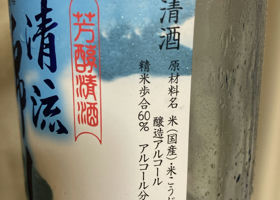 清酒
原材料名 米(国産)・米こうじ
醸造アルコール
精米歩合60% アルコール分
芳醇清酒
清流